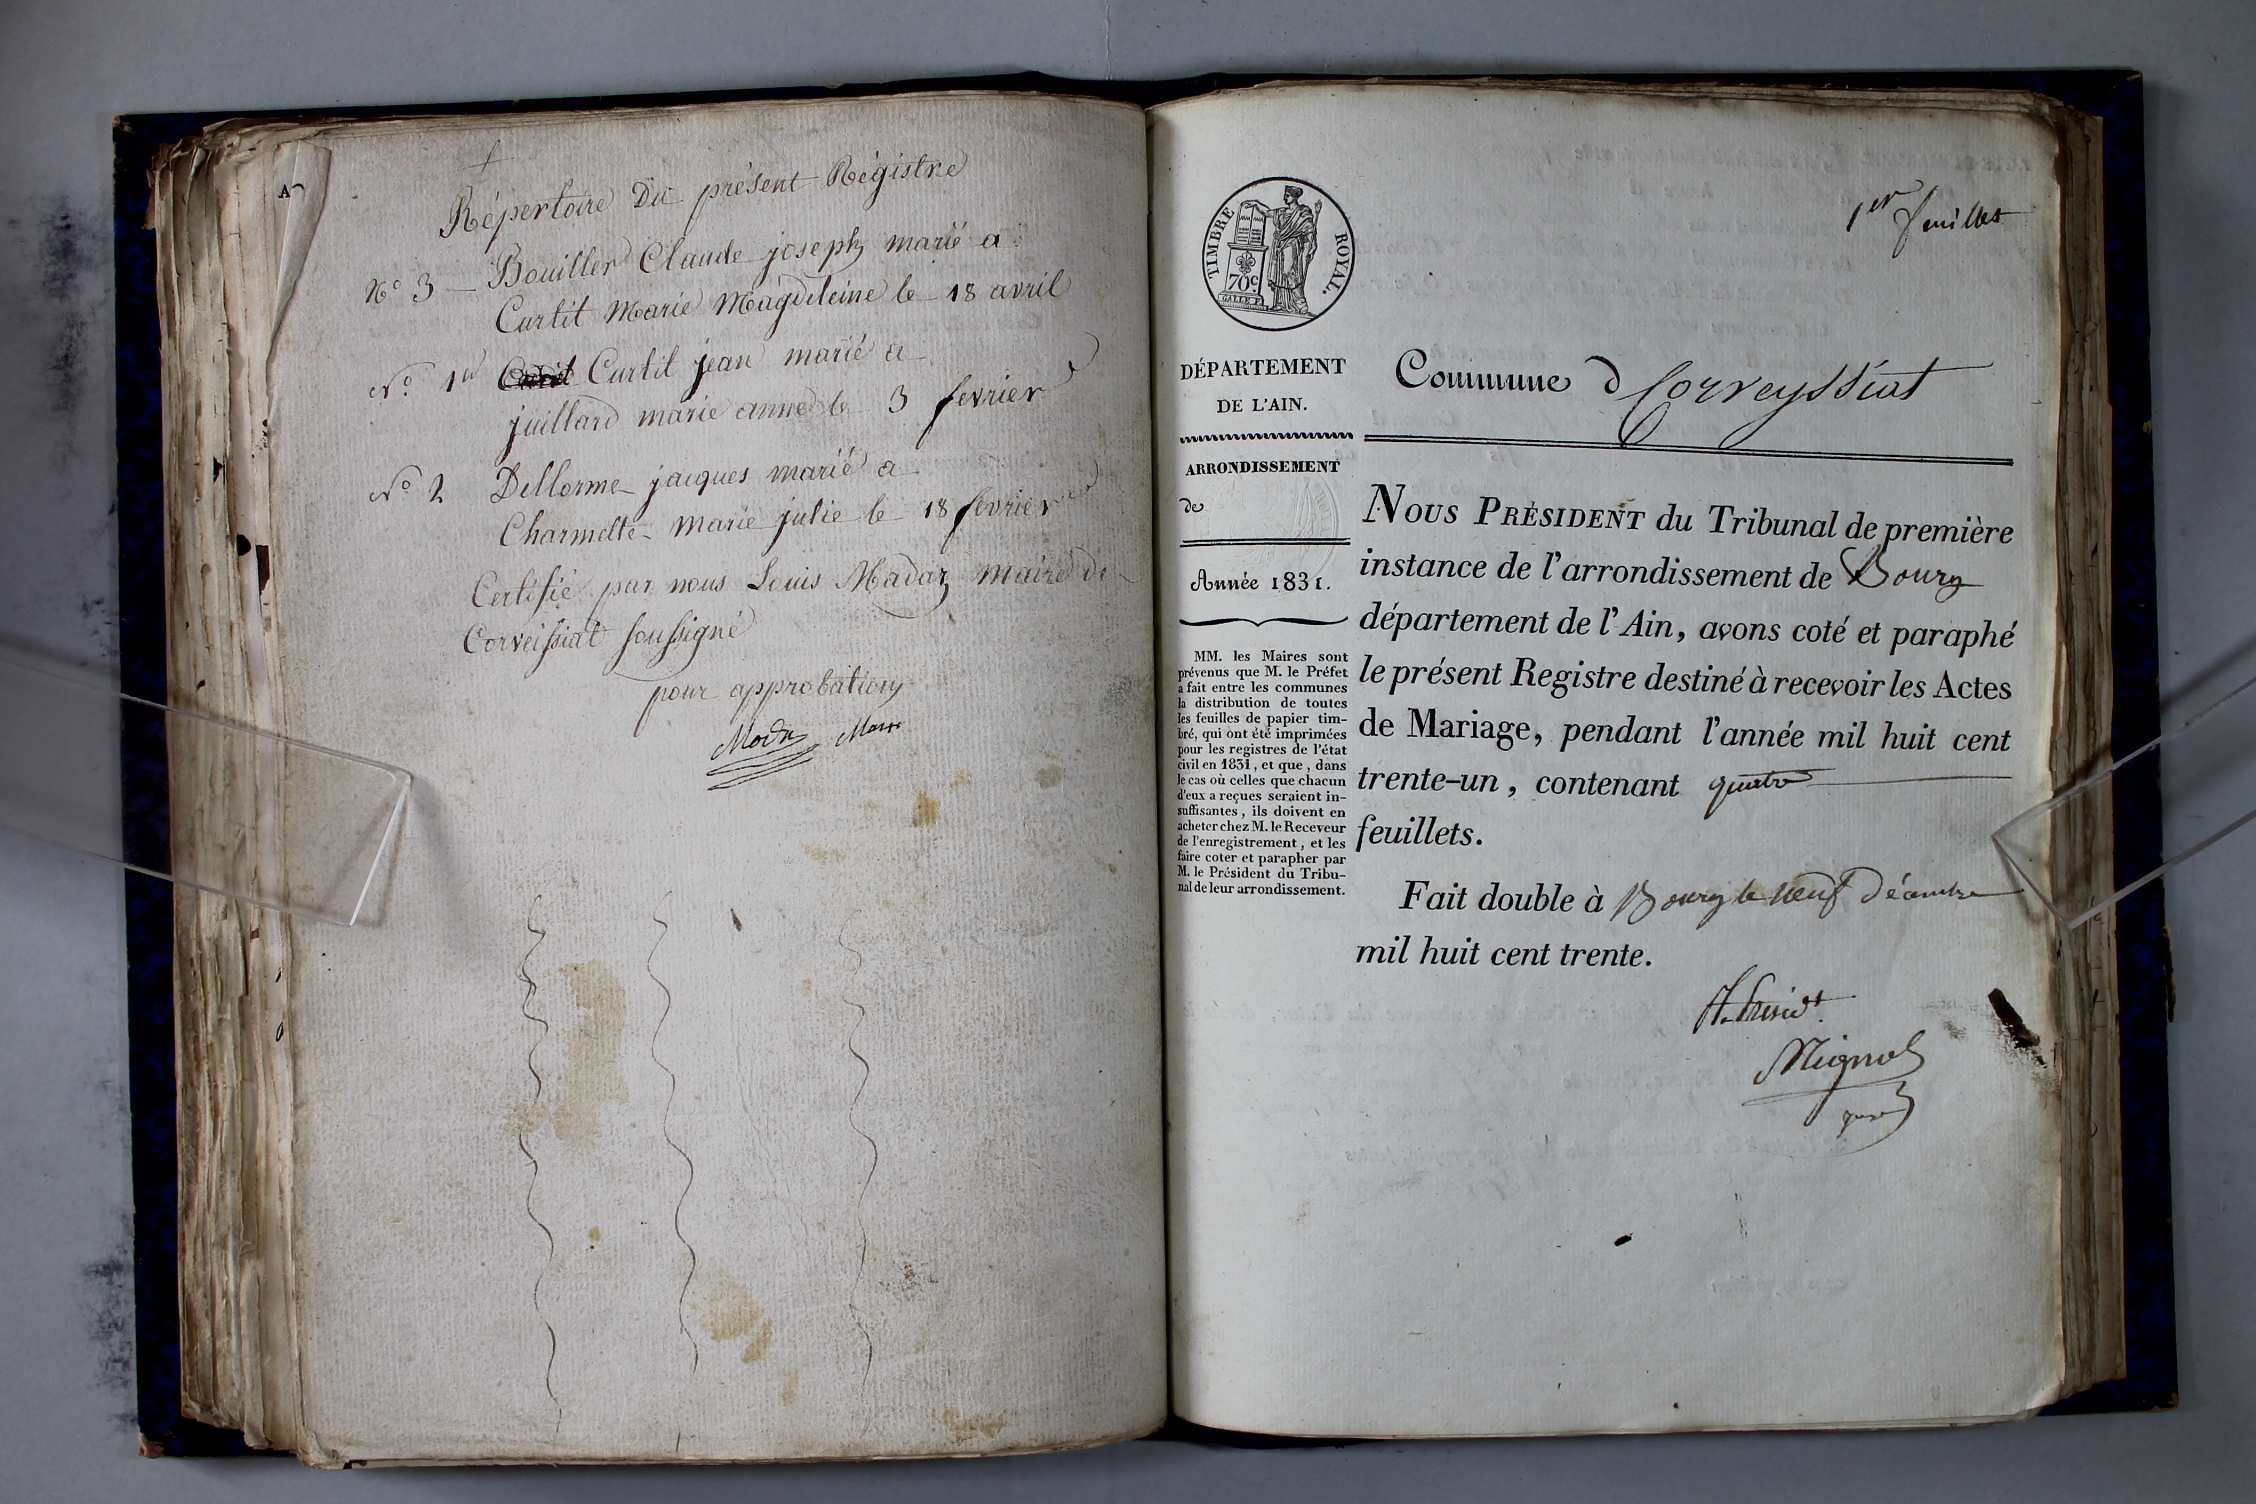 Répertoire Du présent Régistre
N° 3 – Bouiller Claude joseph marié a
Curtit Marie Magdeleine le 18 avril
N° 1er Curtit jean marié a
juillard marie anne le 3 fevrier
N° 2 Dellorme jacques marié a
Charmette marie julie le 18 fevrier
Certifié par nous Louis Madaz maire de
Corveissiat soussigné
pour approbation
Maire
1er feuillet
TIMBRE ROYAL.
70c
GALLE F.
DÉPARTEMENT
DE L'AIN.
ARRONDISSEMENT
de
Année 1831.
MM. les Maires sont
prévenus que M. le Préfet
a fait entre les communes
la distribution de toutes
les feuilles de papier tim-
bré, qui ont été imprimées
pour les registres de l'état
civil en 1831, et que, dans
le cas où celles que chacun
d'eux a reçues seraient in-
suffisantes, ils doivent en
acheter chez M. le Receveur
de l'enregistrement, et les
faire coter et parapher par
M. le Président du Tribu-
nal de leur arrondissement.
Commune d Corveyssiat
NOUS PRÉSIDENT du Tribunal de première
instance de l'arrondissement de Bourg
département de l'Ain, avons coté et paraphé
le présent Registre destiné à recevoir les Actes
de Mariage, pendant l'année mil huit cent
trente-un, contenant quatre
feuillets.
Fait double à Bourg le neuf Décembre
mil huit cent trente.